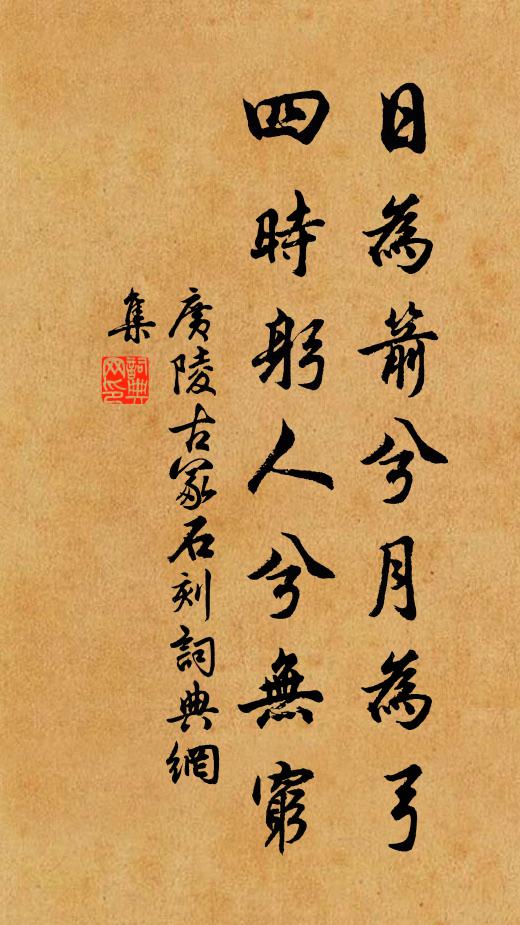 日為箭兮月為弓
四時躬人兮無窮
廣陵古冢石刻詞典網
集
詞典
网印